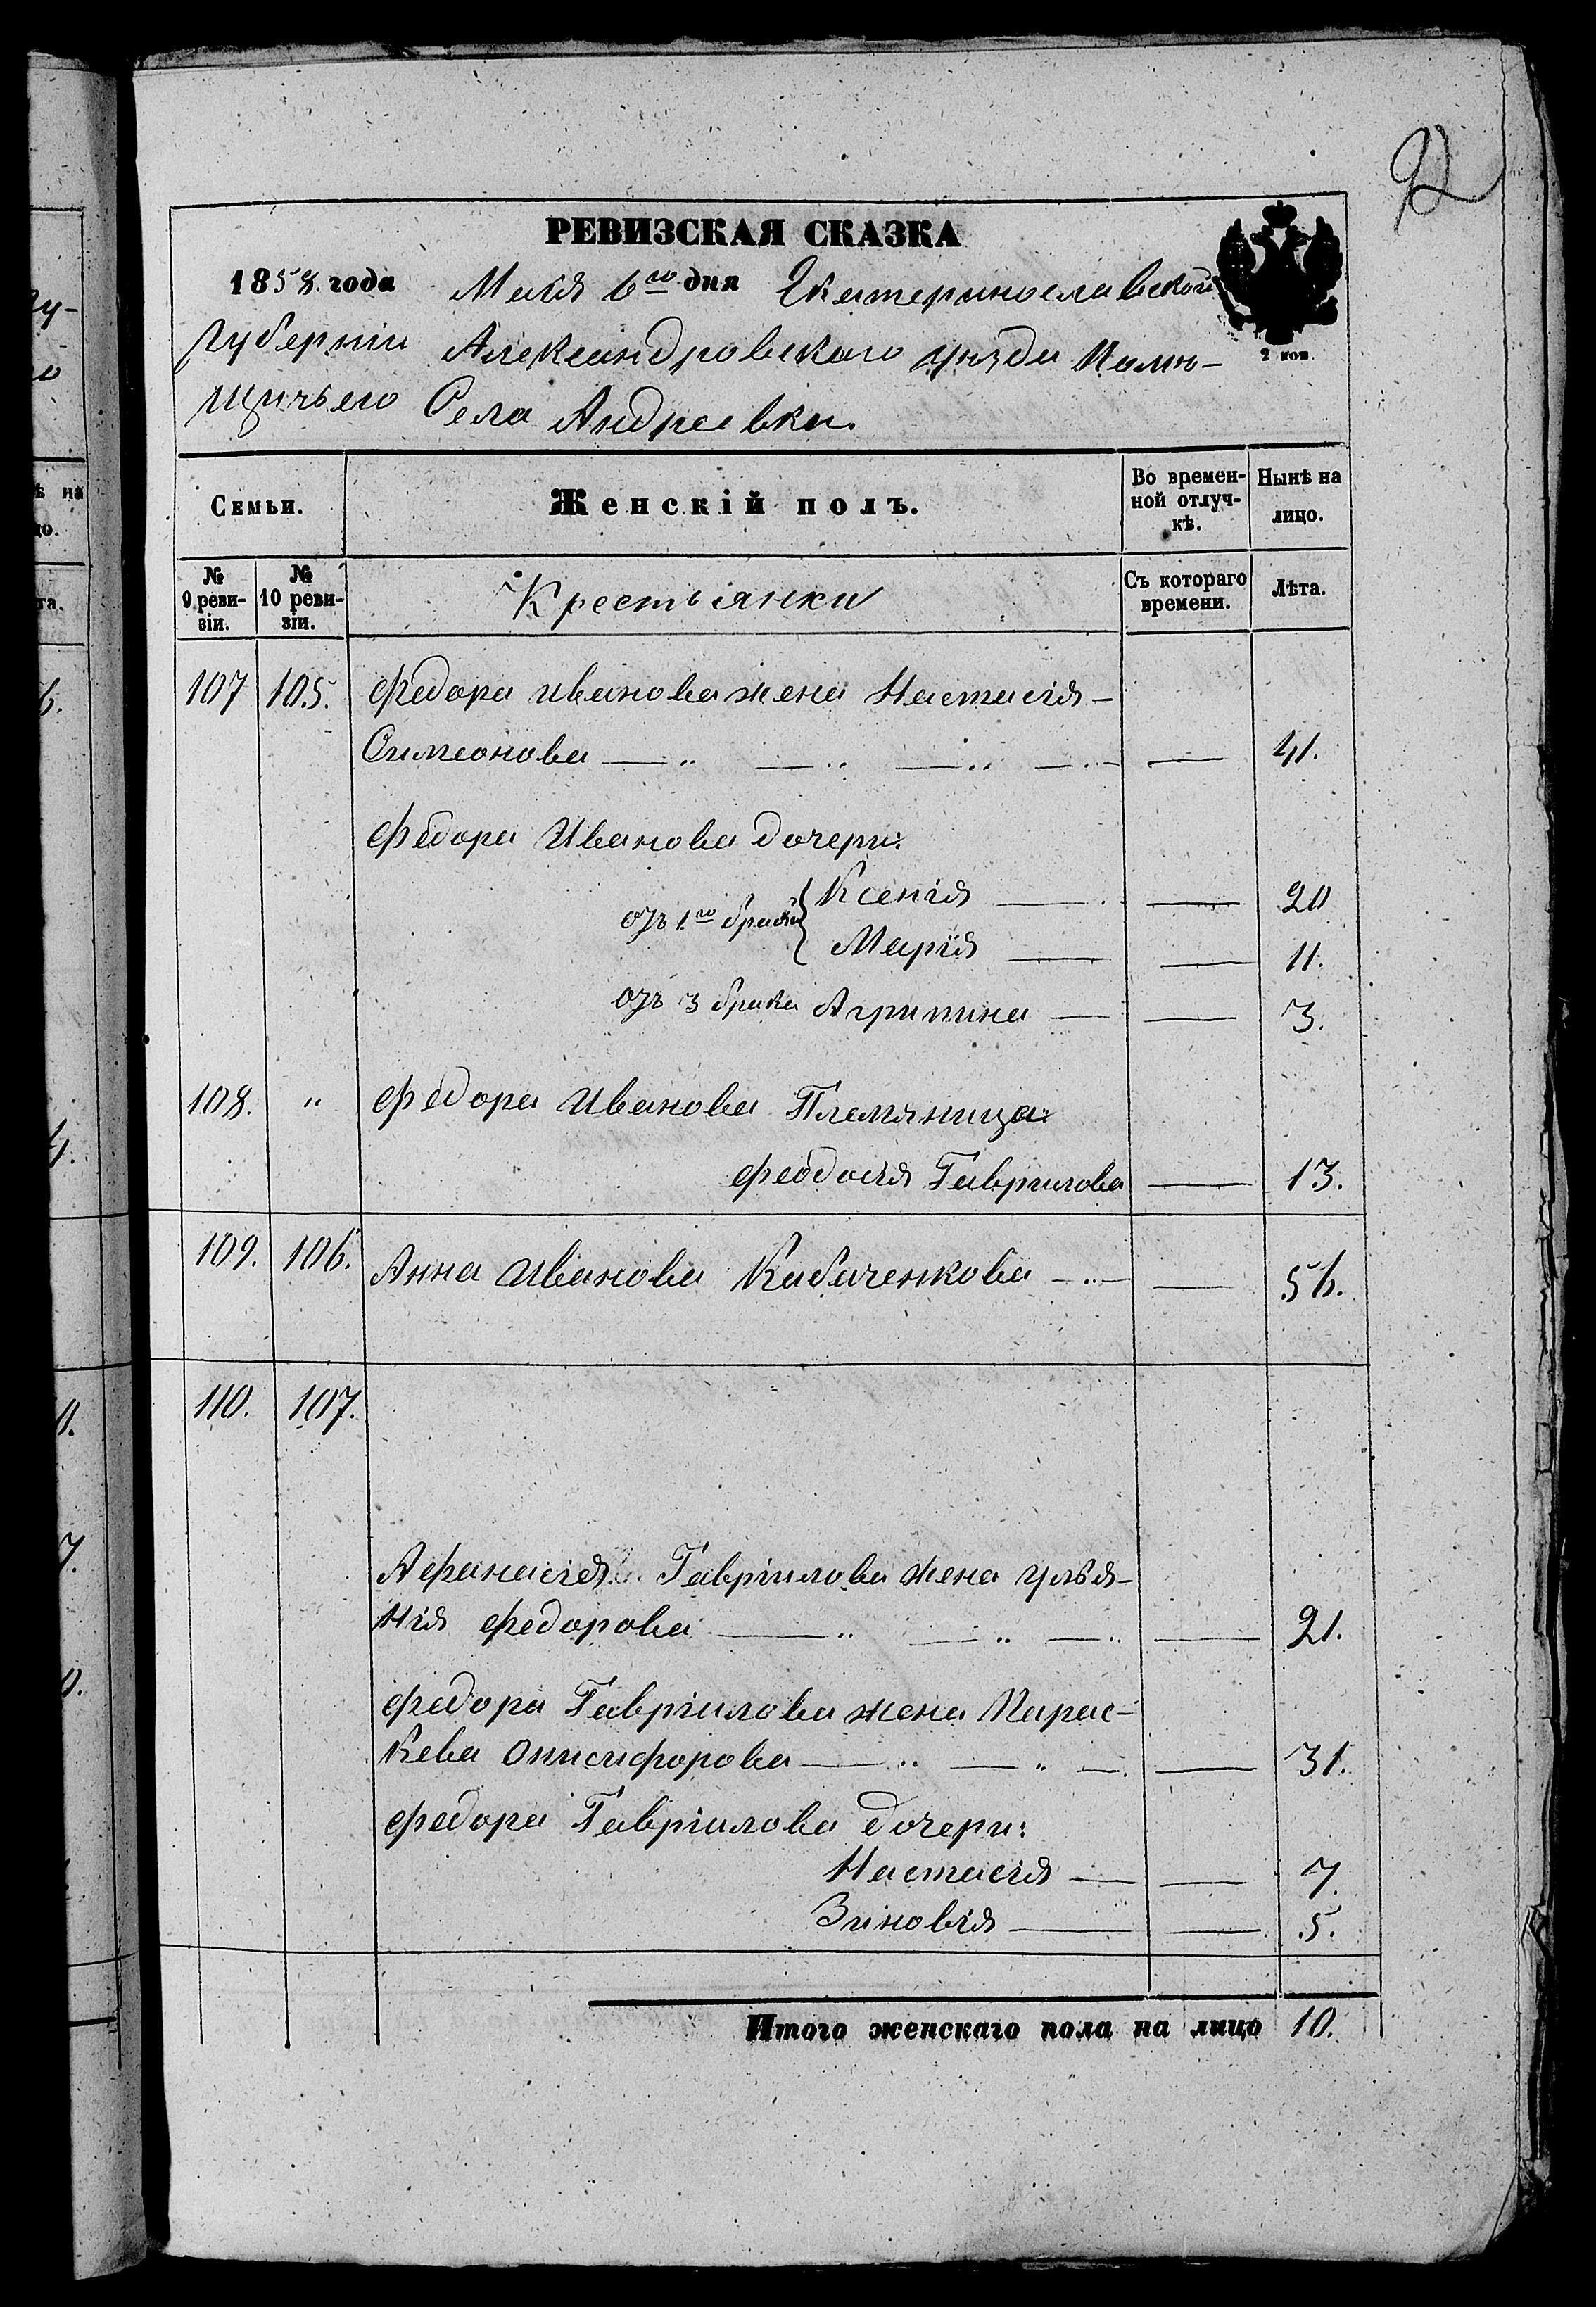 92
РЕВИЗСКАЯ СКАЗКА
1858. года Мая 6го дня Екатеринославской
2 коп.
Губерніи Александровскаго уѣзда Помѣ-
щичьего Села Андреевки.
Семьи. Женскій полъ. Во времен-ной отлуч-кѣ. Нынѣ на лицо.
№ 9 реви-зіи. № 10 реви-зіи. Крестьянки Съ котораго времени. Лѣта.
107 105. Федора Иванова жена Настасія-
Симеонова — „ — „ — „ — — 41.
Федора Иванова дочери:
отъ 1го брака { Ксенія — — 20
Марія — — 11.
отъ 3 брака Агрипина — — 3.
108. „ Федора Иванова Племяница:
Феодосія Гаврилова — 13.
109. 106. Анна Иванова Кабаченкова — „ — — 56.
110. 107.
Афанасія Гавріилова жена Улья-
нія Федорова — „ — „ — „ — 21.
Федора Гавріилова жена Парас-
кева Онисифорова — „ — „ — — 31.
Федора Гавріилова дочери:
Настасія — — 7.
Зиновія — — 5.
Итого женскаго пола на лицо 10.